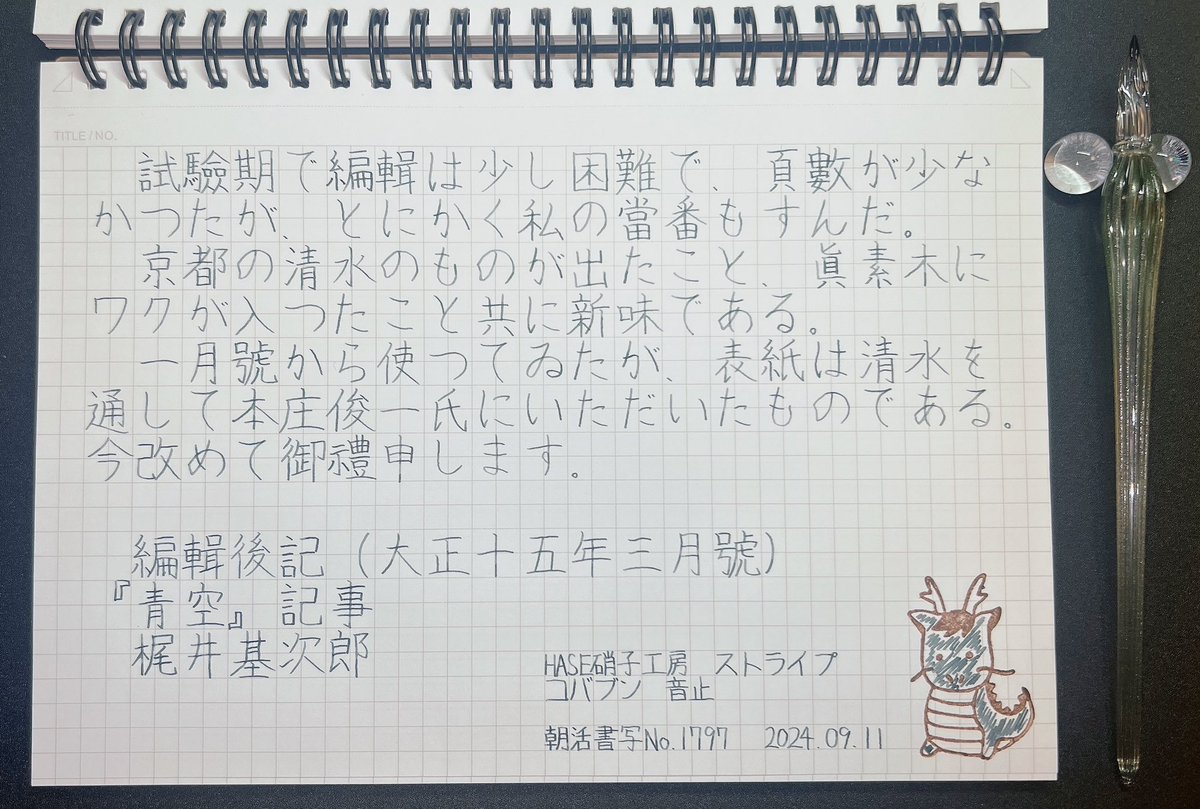 TITLE/NO.
試驗期で編輯は少し困難で、頁數が少な
かつたが、とにかく私の當番もすんだ。
京都の清水のものが出たこと、眞素木に
ワクが入つたこと共に新味である。
一月號から使つてゐたが、表紙は清水を
通して本庄俊一氏にいただいたものである。
今改めて御禮申します。
編輯後記(大正十五年三月號)
『青空』記事
梶井基次郎
HASE硝子工房 ストライプ
コバブン 音止
朝活書写No.1797 2024.09.11